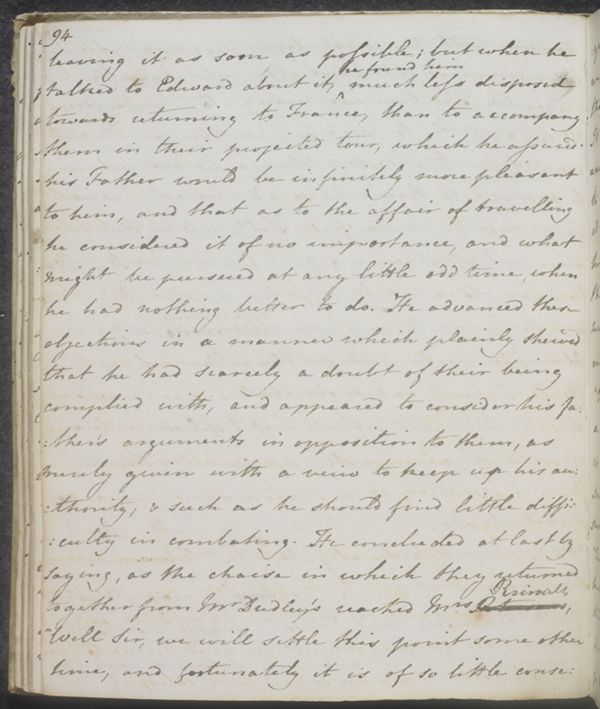 94
leaving it as soon as possible; but when he
talked to Edward about it, he found him much less disposed
towards returning to France, than to accompany
them in their projected tour, which he assured
his Father would be infinitely more pleasant
to him, and that as to the affair of travelling
he considered it of no importance, and what
might be pursued at any little odd time, when
he had nothing better to do. He advanced these
objections in a manner which plainly shewed
that he had scarcely a doubt of their being
complied with, and appeared to consider his fa:
:ther's arguments in opposition to them, as
merely given with a view to keep up his au:
:thority, & such as he should find little diffi:
:culty in combating. He concluded at last by
saying, as the chaise in which they returned
together from Mr Dudley's reached Mrs
"Well Sir, we will settle this point some other
time, and fortunately it is of so little conse: